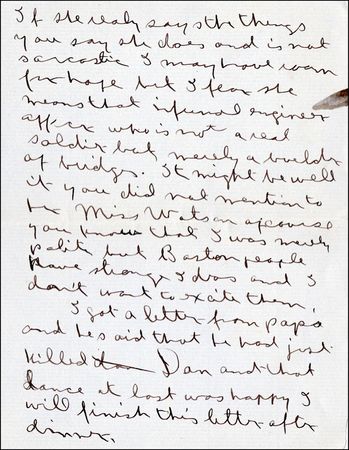 If she really says the things
you say she does and is not
sarcastic I may have room
for hope but I fear she
means that infernal engineer
officer who is not a real
soldier but merely a builder
of bridges. It might be well
if you did not mention to
her Miss Watson of course
you know that I was merely
polite but Boston people
have strange Ideas and I
don't want to excite them.
I got a letter from papa
and he said that he had just
killed Dan and that
dance at last was happy I
will finish this letter after
dinner.